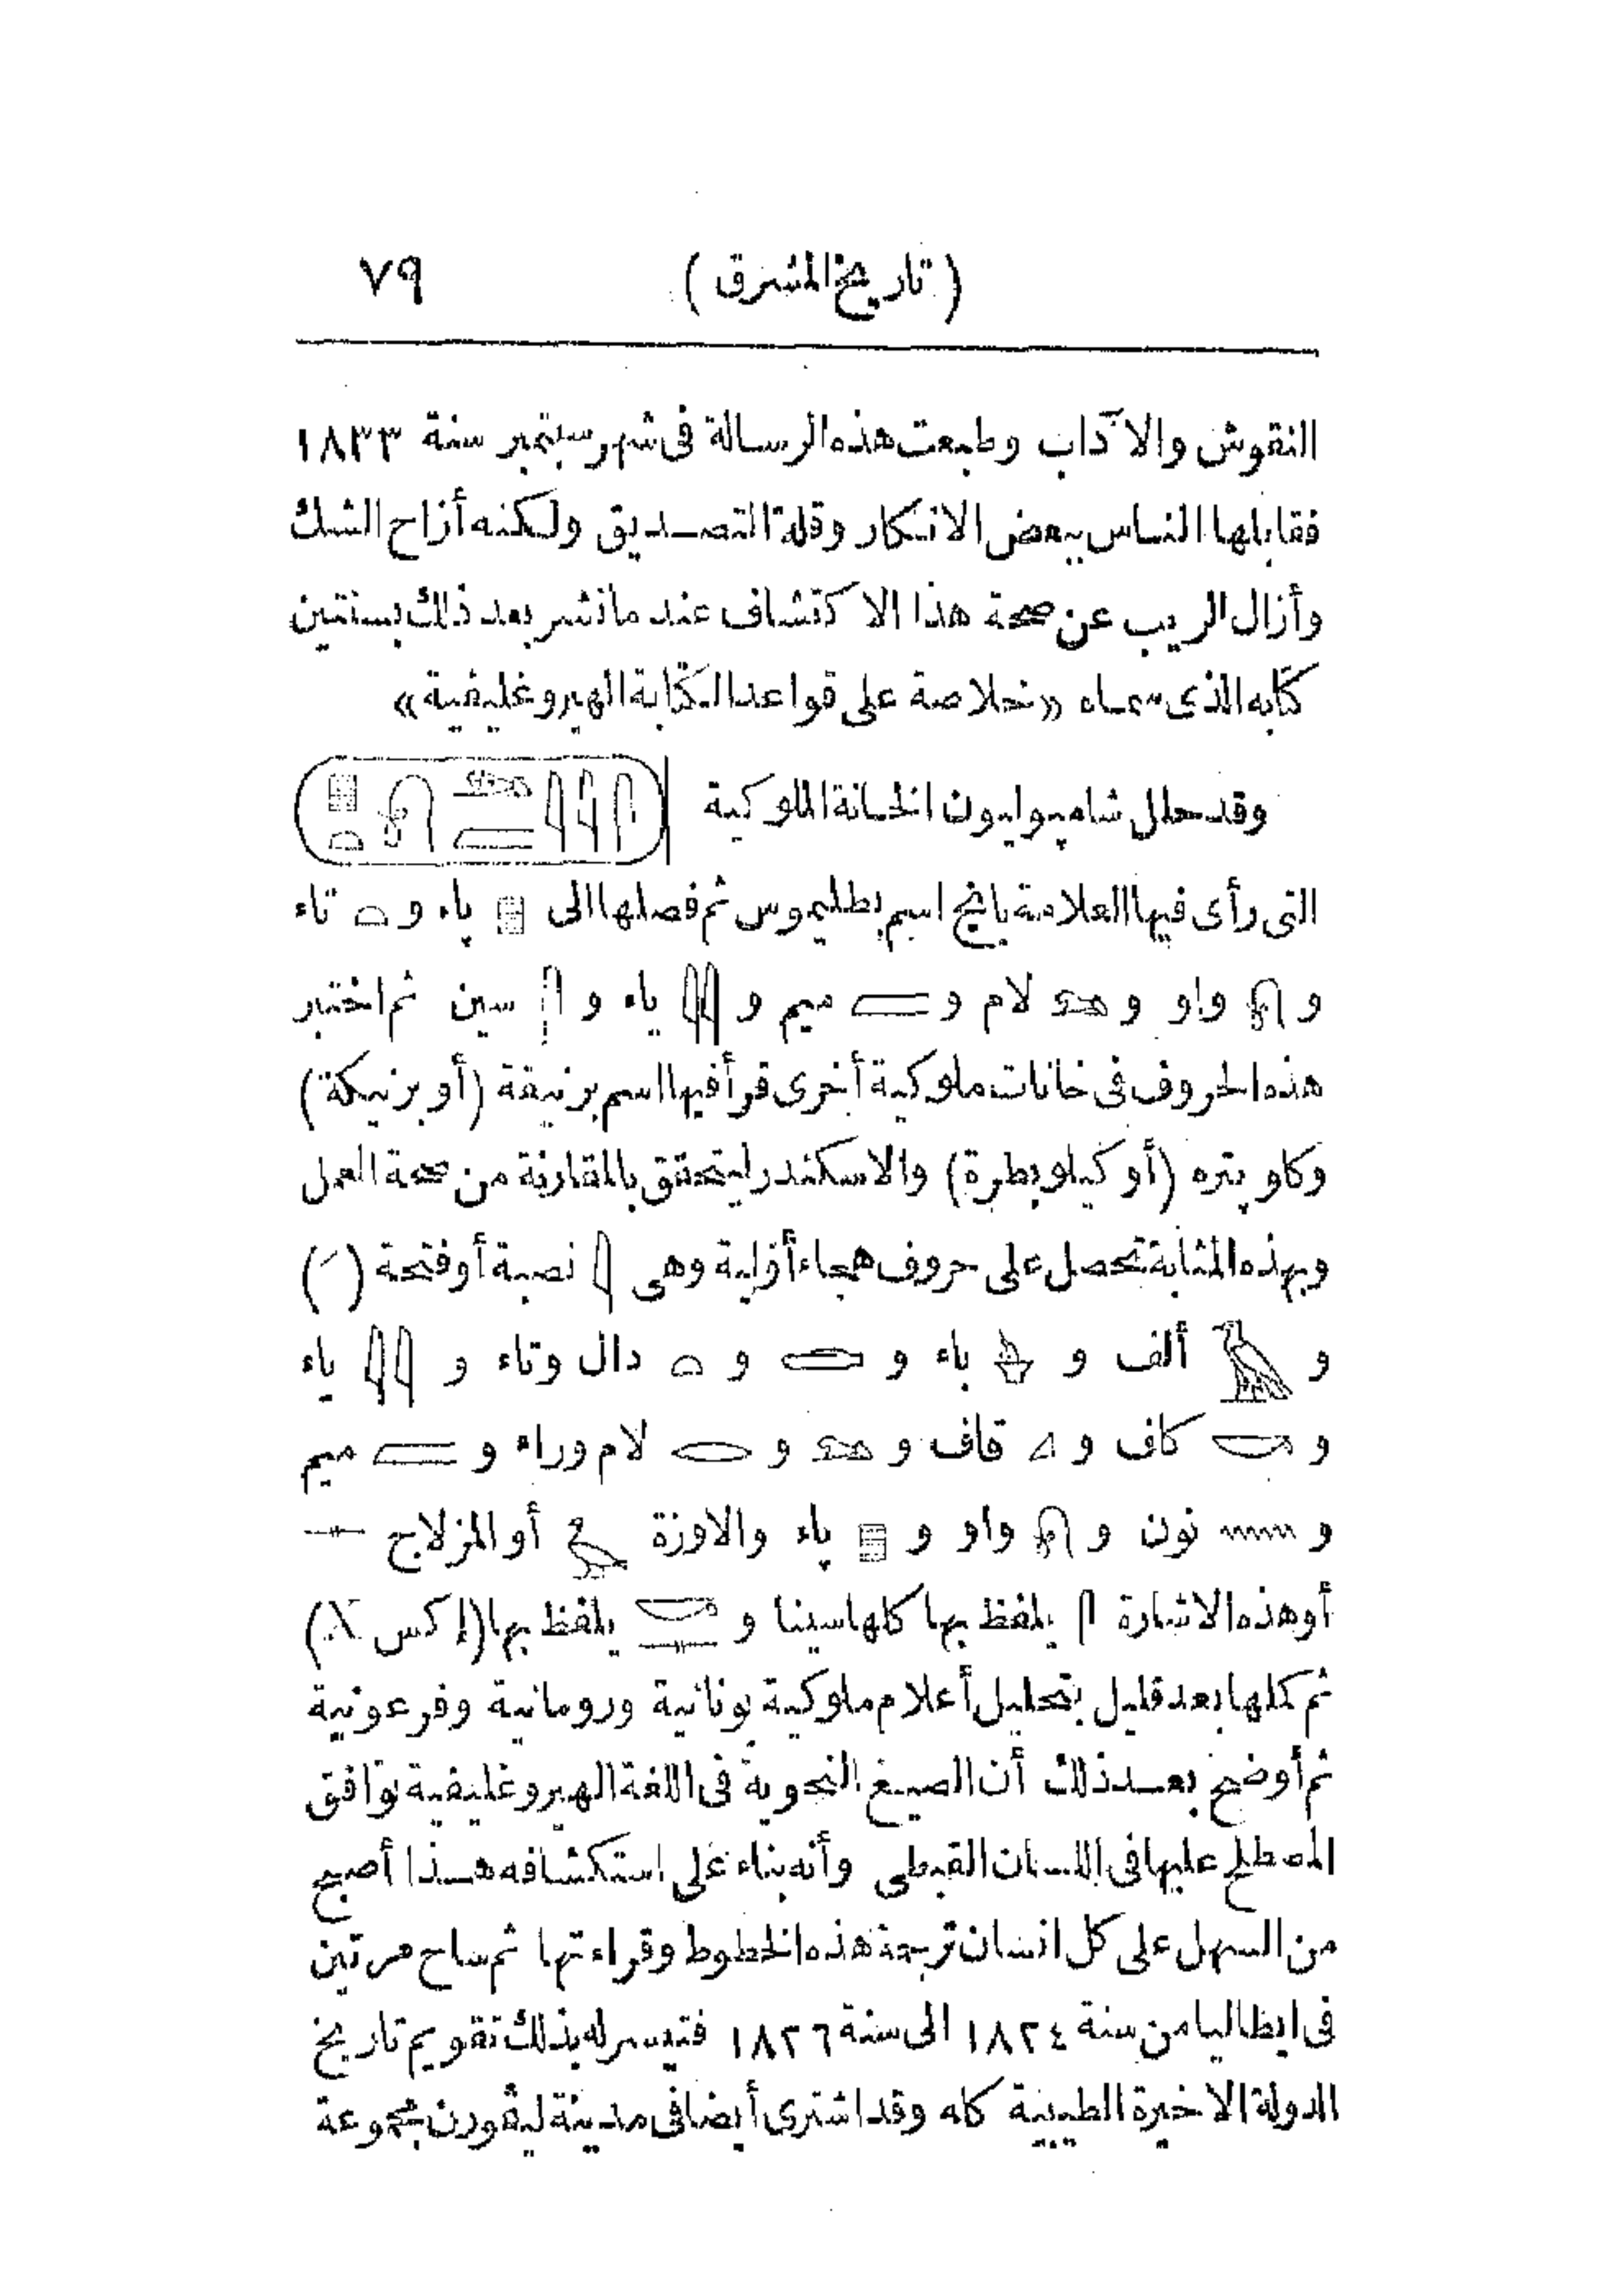 (تاريخ المشرق) ٧٩
النقوش والآداب وطبعت هذه الرسالة فى شهر سبتمبر سنة ١٨٣٣
فقابلها الناس ببعض الانكار وقلة التصديق ولكنه أزاح الشك
وأزال الريب عن صحة هذا الاكتشاف عند ما نشر بعد ذلك بسنتين
كتابه الذى سماه «خلاصة على قواعد الكتابة الهيروغليفية»
وقد حلل شامپوليون الخانة الملوكية
التى رأى فيها العلامة يانج اسم بطليموس ثم فصلها الى پاء و تاء
و واو و لام و ميم و ياء و سين ثم اختبر
هذه الحروف فى خانات ملوكية أخرى قرأ فيها اسم برنيقة (أو برنيكة)
وكلوپتره (أو كيلوبطرة) والاسكندر ليتحقق بالمقارنة من صحة العمل
وبهذه المثابة تحصل على حروف هجاء أولية وهى نصبة أو فتحة (َ)
و ألف و باء و و دال وتاء و ياء
و كاف و قاف و و لام وراء و ميم
و نون و واو و پاء والاوزة أو المزلاج
أو هذه الاشارة يلفظ بها كلها سينا و يلفظ بها (إكس X)
ثم كملها بعد قليل بتحليل أعلام ملوكية يونانية ورومانية وفرعونية
ثم أوضح بعد ذلك أن الصيغ النحوية فى اللغة الهيروغليفية توافق
المصطلح عليها فى اللسان القبطى وأنه بناء على استكشافه هذا أصبح
من السهل على كل انسان ترجمة هذه الخطوط وقراءتها ثم ساح مرتين
فى ايطاليا من سنة ١٨٢٤ الى سنة ١٨٢٦ فتيسر له بذلك تقويم تاريخ
الدولة الاخيرة الطيبية كله وقد اشترى أيضا فى مدينة ليڤورن مجموعة